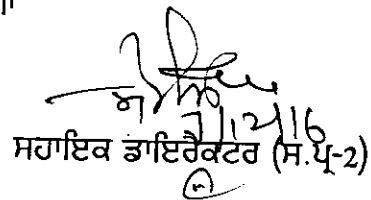 7/12/16
ਸਹਾਇਕ ਡਾਇਰੈਕਟਰ (ਸ.ਪ੍ਰ-2)